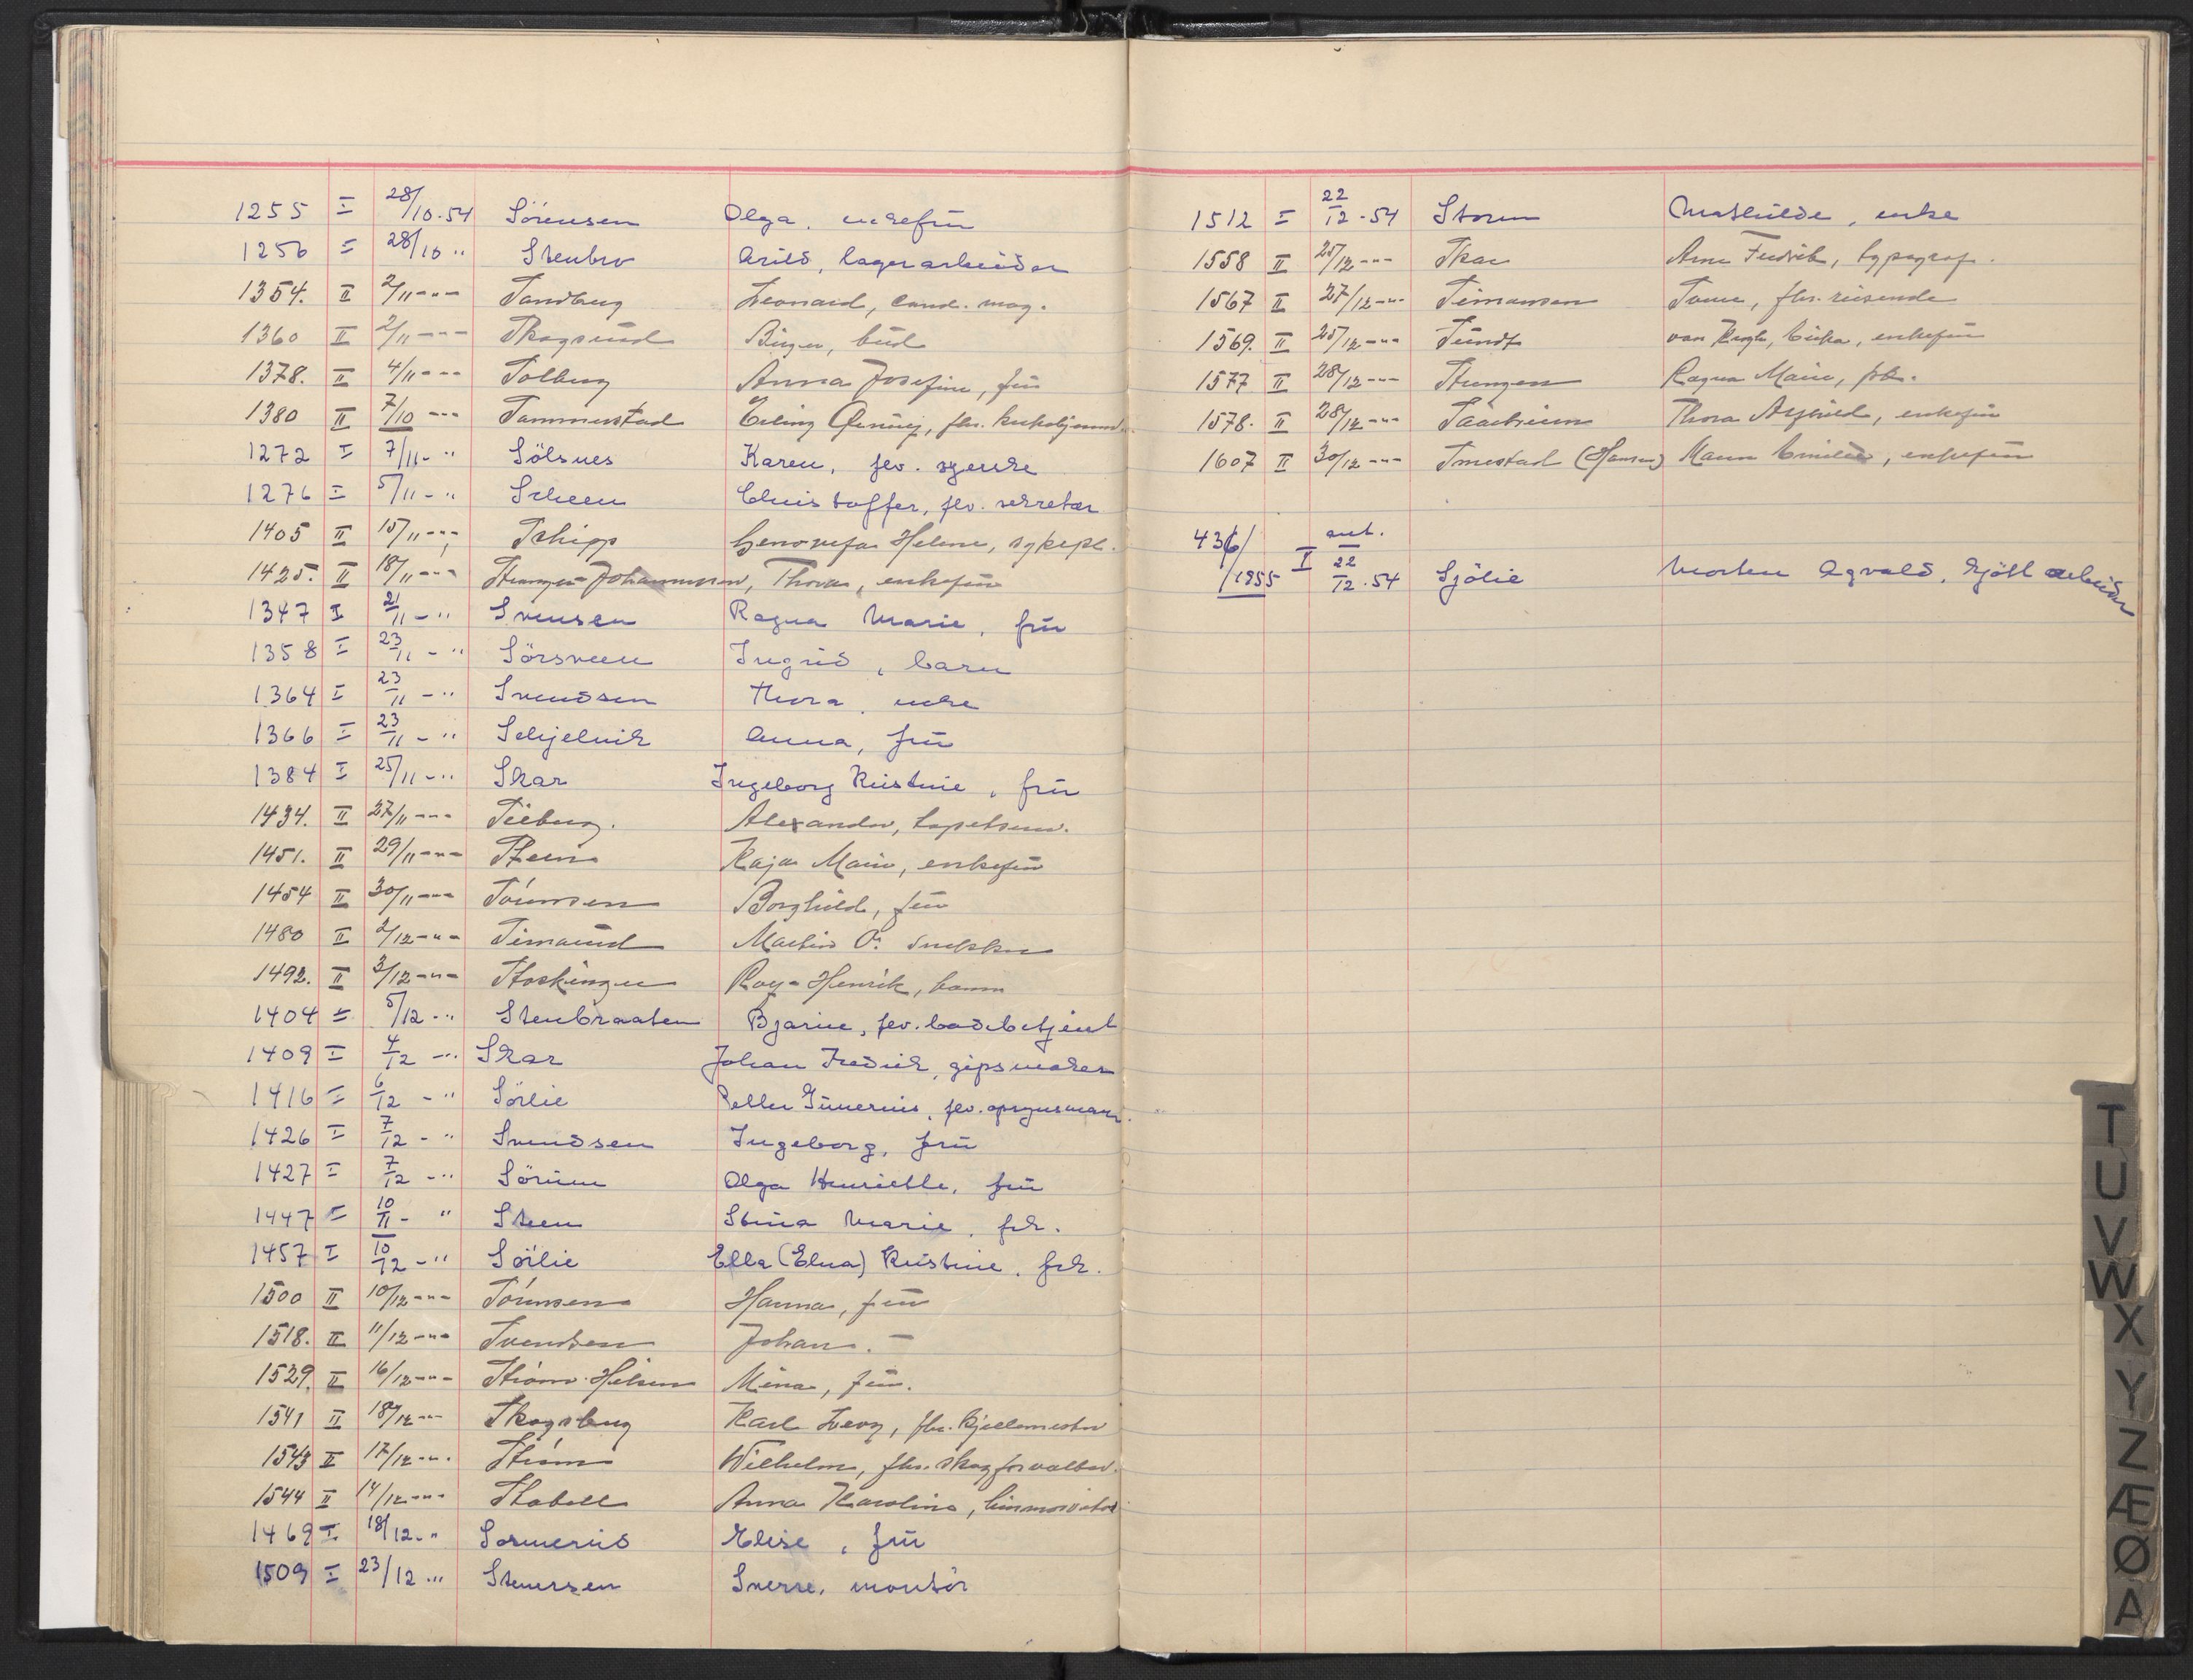 1255 I 28/10-54 Sörensen Olga, enkefrü
1256 I 28/10 " Stenbro Arild, lagerarbeider
1354. II 2/11 -"- Sandberg Leonard, cand. mag.
1360 II 2/11 -"- Skogsrud Birger, bud
1378. II 4/11 -"- Solberg Anna Josefine, frü
1380 II 7/10 -"- Sammerstad Erling
1272 I 7/11 - " Sölsnes Karen, fev.
1276 I 5/11 - " Scheen Christoffer, fev. sekretær
1405 II 15/11 -"- Schipp Genovefa Helene, sykepl.
1425. II 18/11 -"- Johannessen, Thora, enkefrü
1347 I 21/11 - " Svensen Ragna Marie, frü
1358 I 23/11 - " Sörsveen Ingrid, barn
1364 I 23/11 - " Svendsen Thora, enke
1366 I 23/11 - " Schjelvik Anna, frü
1384 I 25/11 - " Skar Ingeborg Kristine, frü
1434. II 27/11 -"- Sieberg. Alexander, tapetserer.
1451. II 29/11 -"- Steen Kaja Marie, enkefrü
1454 II 30/11 -"- Sörensen Borghild, frü
1480 II 2/12 -"- Simarud Martin O. snekker
1492. II 3/12 -"- Stoskinger Roy-Henrik, barn
1404 I 5/12 - " Stenbraaten Bjarne, fev. badebetjent
1409 I 4/12 - " Skar Johan Fredrik, gipsmaker
1416 I 6/12 - " Sörlie Petter fev. opsynsmann.
1426 I 7/12 - " Svendsen Ingeborg, frü
1427 I 7/12 - " Sörum Olga Henriette, frü
1447 I 10/11 - " Steen Stina Marie, frk.
1457 I 10/12 - " Sörlie Ella (Elna) Kristine, frk.
1500 II 10/12 -"- Sörensen Hanna, frü
1518. II 11/12 -"- Svendsen Johan. -
1529. II 16/12 -"- Ström-Nilsen Mina, frü.
1541 II 18/12 -"- Skogsberg Karl Levy, fhv. kjellermester
1543 II 17/12 -"- Ström Wilhelm, fhv. skogforvalter.
1544 II 14/12 -"- Stabell Anna Karoline,
1469 I 18/12 - " Sormerüd Elise, frü
1509 I 23/12 " Stenersen Sverre, montör
1512 I 22/12-54 Storm Mathilde, enke
1558 II 25/12 -"- Skar Arne Fredrik, typograf.
1567 II 27/12 -"- Simensen fhv. reisende
1569. II 25/12 -"- Sundt van Krogh, enkefrü
1577 II 28/12 -"- Ragna Marie, frk.
1578. II 28/12 -"- Thora enkefrü
1607 II 30/12 -"- Smestad (Hansen) Maren Emilie, enkefrü
436/1955 I ant. 22/12-54 Sjölie Morten Agvald, sjöttarbeider
T
U
V
W
X
Y
Z
Æ
Ø
A